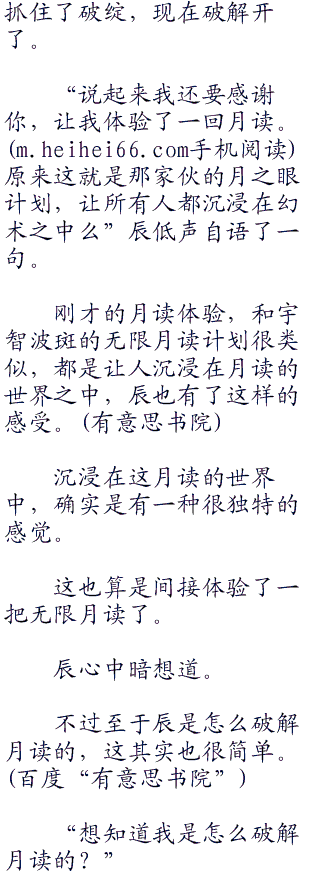 抓住了破绽，现在破解开
了。
“说起来我还要感谢
你，让我体验了一回月读。
(m.heihei66.com手机阅读)
原来这就是那家伙的月之眼
计划，让所有人都沉浸在幻
术之中么”辰低声自语了一
句。
刚才的月读体验，和宇
智波斑的无限月读计划很类
似，都是让人沉浸在月读的
世界之中，辰也有了这样的
感受。(有意思书院)
沉浸在这月读的世界
中，确实是有一种很独特的
感觉。
这也算是间接体验了一
把无限月读了。
辰心中暗想道。
不过至于辰是怎么破解
月读的，这其实也很简单。
(百度“有意思书院”)
“想知道我是怎么破解
月读的？”